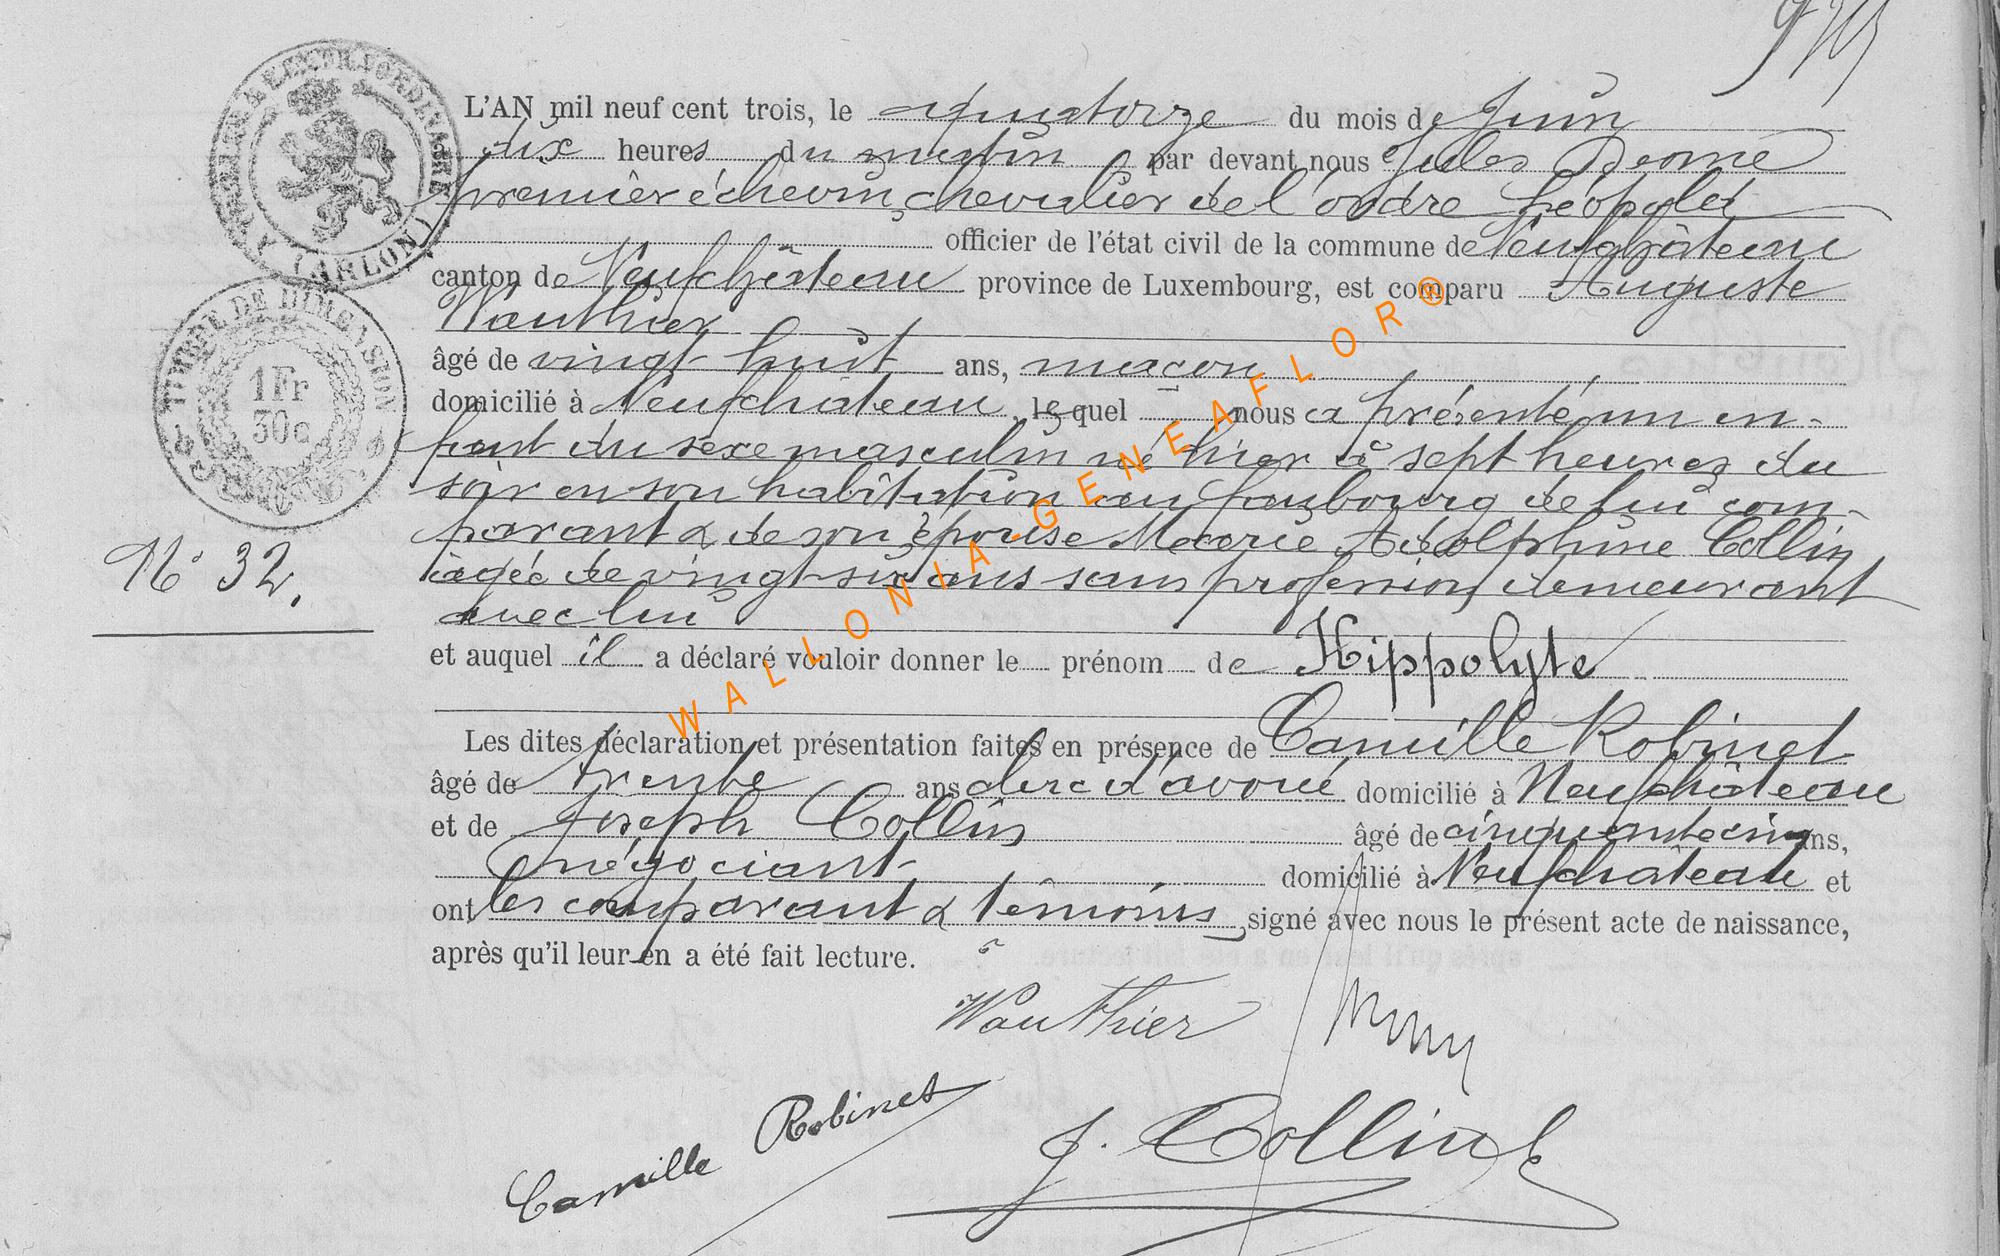 L'AN mil neuf cent trois, le quatorze du mois de Juin
dix heures du matin par devant nous Jules Deome
premier échevin, chevalier de l'ordre Léopold
officier de l'état civil de la commune de Neufchâteau
canton de Neufchâteau province de Luxembourg, est comparu Auguste
Wauthier
âgé de vingt-huit ans, maçon
domicilié à Neufchâteau, lequel nous a présenté un en-
fant du sexe masculin né hier à sept heures du
soir en son habitation au faubourg de lui com-
parant & de son épouse Marie Adolphine Collin
âgée de vingt-six ans sans profession demeurant
avec lui
et auquel il a déclaré vouloir donner le prénom de Hippolyte
Les dites déclaration et présentation faites en présence de Camille Robinet
âgé de trente ans clerc d'avoué domicilié à Neufchâteau
et de Joseph Collin âgé de cinquante cinq ans,
négociant domicilié à Neufchâteau et
ont les comparant & témoins signé avec nous le présent acte de naissance,
après qu'il leur en a été fait lecture.
Wauthier
Camille Robinet
J. Collin
N° 32.
TIMBRE DE DIMENSION
1Fr
30c
(ARLON)
WALLONIA-GENEAFLOR®